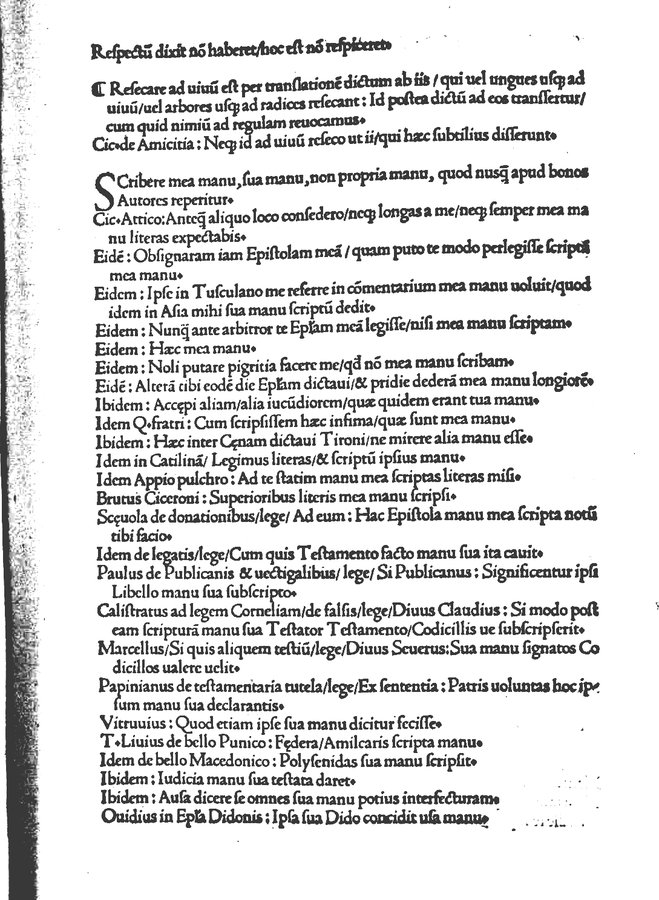 Reſpectū dixit nō haberet/hoc eſt nō reſpiceret•
¶ Reſecare ad uiuū eſt per tranſlationē dictum ab iis / qui uel ungues uſq; ad
uiuū/uel arbores uſq; ad radices reſecant : Id poſtea dictū ad eos tranſfertur/
cum quid nimiū ad regulam reuocamus•
Cic•de Amicitia : Neq; id ad uiuū reſeco ut ii/qui hæc ſubtilius diſſerunt•
SCribere mea manu, ſua manu, non propria manu, quod nusq̄ apud bonos
Autores reperitur•
Cic•Attico:Anteq̄ aliquo loco conſedero/neq; longas a me/neq; ſemper mea ma
nu literas expectabis•
Eidē : Obſignaram iam Epiſtolam meā / quam puto te modo perlegiſſe ſcriptā
mea manu•
Eidem : Ipſe in Tuſculano me referre in cōmentarium mea manu uoluit/quod
idem in Aſia mihi ſua manu ſcriptū dedit•
Eidem : Nunq̄ ante arbitror te Epľam meā legiſſe/niſi mea manu ſcriptam•
Eidem : Hæc mea manu•
Eidem : Noli putare pigritia facere me/qđ nō mea manu ſcribam•
Eidē : Alterā tibi eodē die Epľam dictaui/& pridie dederā mea manu longiorē•
Ibidem : Accępi aliam/alia iucūdiorem/quæ quidem erant tua manu•
Idem Q•fratri : Cum ſcripſiſſem hæc infima/quæ ſunt mea manu•
Ibidem : Hæc inter Cęnam dictaui Tironi/ne mirere alia manu eſſe•
Idem in Catilinā/ Legimus literas/& ſcriptū ipſius manu•
Idem Appio pulchro : Ad te ſtatim manu mea ſcriptas literas miſi•
Brutus Ciceroni : Superioribus literis mea manu ſcripſi•
Scęuola de donationibus/lege/ Ad eum : Hac Epiſtola manu mea ſcripta notū
tibi facio•
Idem de legatis/lege/Cum quis Teſtamento facto manu ſua ita cauit•
Paulus de Publicanis & uectigalibus/ lege/ Si Publicanus : Significentur ipſi
Libello manu ſua ſubſcripto•
Caliſtratus ad legem Corneliam/de falſis/lege/Diuus Claudius : Si modo poſt
eam ſcripturā manu ſua Teſtator Teſtamento/Codicillis ue ſubſcripſerit•
Marcellus/Si quis aliquem teſtiū/lege/Diuus Seuerus:Sua manu ſignatos Co
dicillos ualere uelit•
Papinianus de teſtamentaria tutela/lege/Ex ſententia : Patris uoluntas hoc ip
ſum manu ſua declarantis•
Vitruuius : Quod etiam ipſe ſua manu dicitur feciſſe•
T•Liuius de bello Punico : Fędera/Amilcaris ſcripta manu•
Idem de bello Macedonico : Polyſenidas ſua manu ſcripſit•
Ibidem : Iudicia manu ſua teſtata daret•
Ibidem : Auſa dicere ſe omnes ſua manu potius interfecturam•
Ouidius in Epľa Didonis : Ipſa ſua Dido concidit uſa manu•